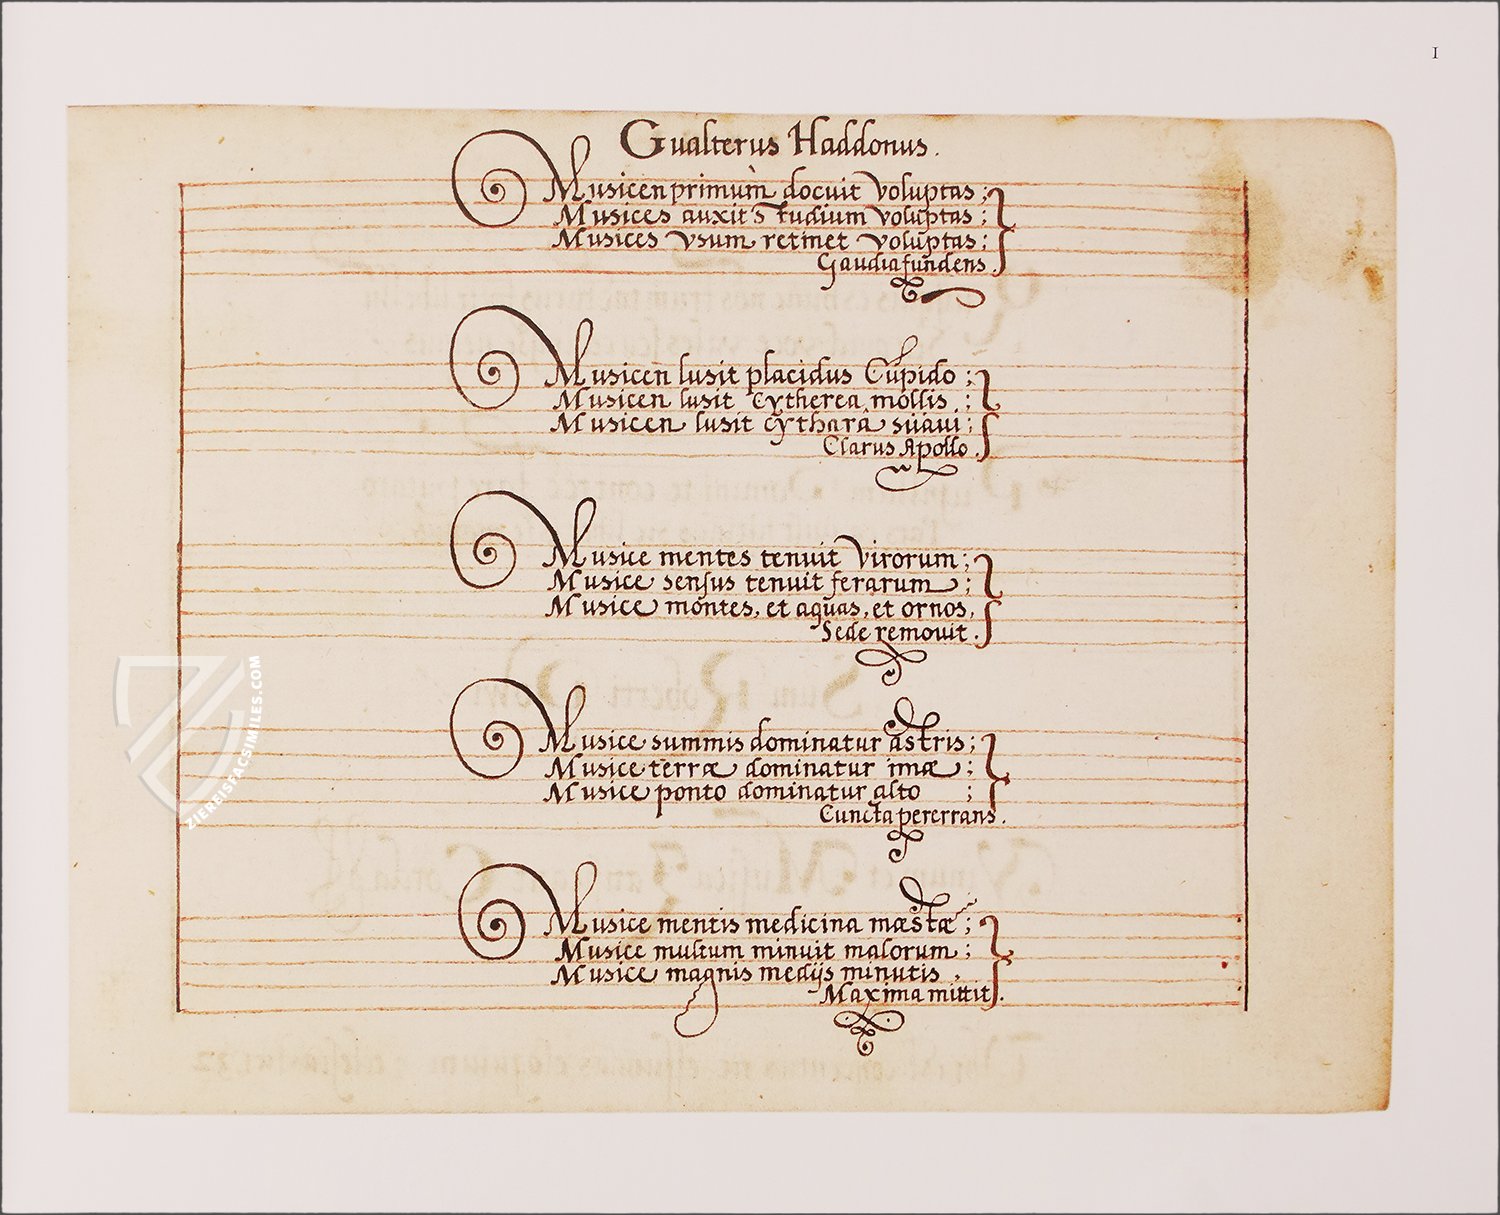 I
Gualterus Haddonus.
Musicen primum docuit voluptas;
Musices auxit studium voluptas;
Musices vsum retinet voluptas;
Gaudia fundens.
Musicen lusit placidus Cupido;
Musicen lusit Cytherea mollis;
Musicen lusit cythara suaui;
Clarus Apollo.
Musice mentes tenuit virorum;
Musice sensus tenuit ferarum;
Musice montes, et aquas, et ornos,
Sede remouit.
Musice summis dominatur astris;
Musice terræ dominatur imæ;
Musice ponto dominatur alto;
Cuncta pererrans.
Musice mentis medicina mæstæ;
Musice multum minuit malorum;
Musice magnis medijs minutis,
Maxima mittit.
Sum Roberti
ZIEREISFACSIMILES.COM